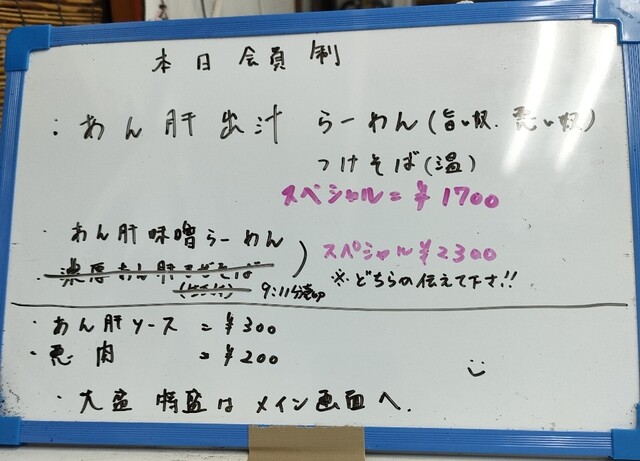 本日会員制
: あん肝出汁 らーめん(旨い奴. 悪い奴)
つけそば(温)
スペシャル=¥1700
・あん肝味噌らーめん
・濃厚あん肝そば
スペシャル¥2300
※どちらの伝えて下さ!!
9:11分
・あん肝ソース =¥300
・悪肉 =¥200
・大盛 特盛はメイン画面へ.